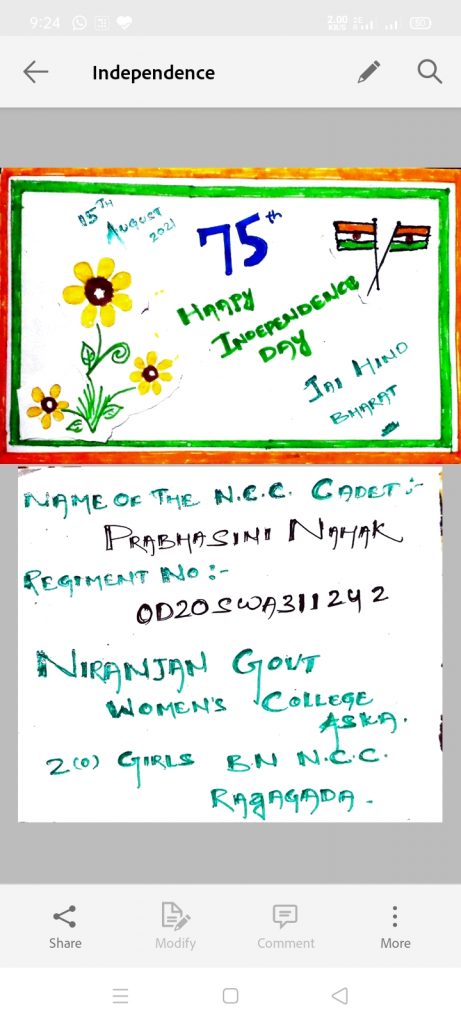 9:24
2.00 KB/S
60
Independence
15TH
AUGUST
2021
75th
HAAPY
INDEPENDENCE
DAY
JAI HIND
BHARAT
NAME OF THE N.C.C. CADET :-
PRABHASINI NAHAK
REGIMENT NO :-
OD20SWA311242
NIRANJAN GOVT
WOMEN'S COLLEGE
ASKA.
2(O) GIRLS BN N.C.C.
RAGAGADA.
Share
Modify
Comment
More